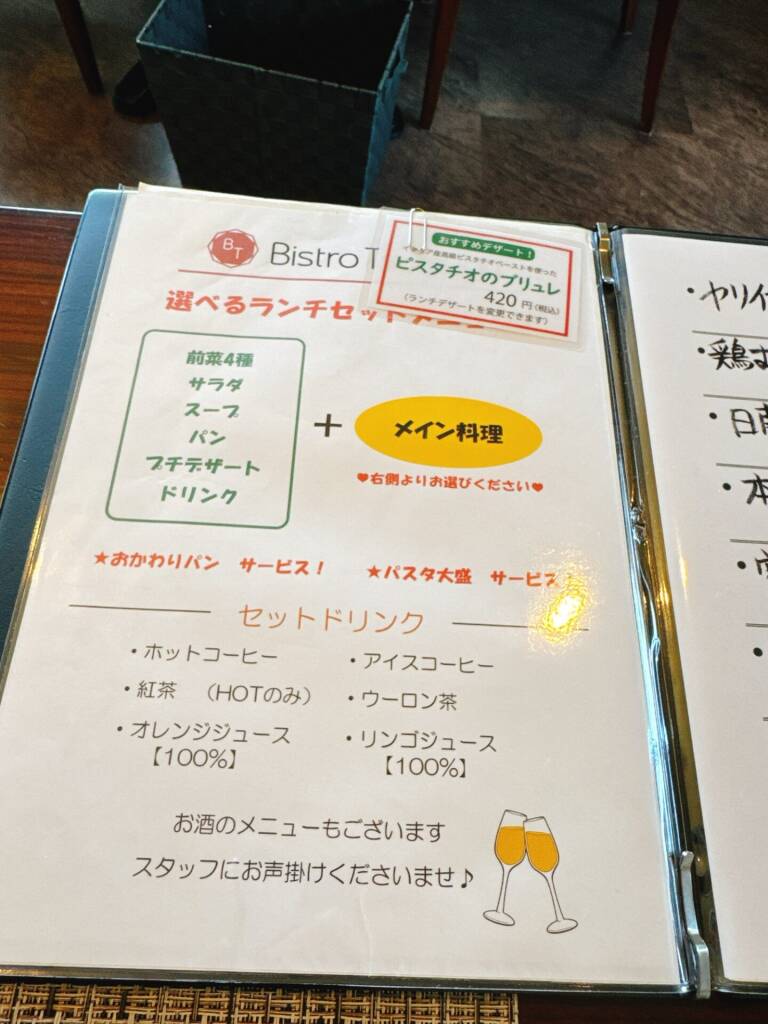 BT
Bistro T
おすすめデザート！
イタリア産高級ピスタチオペーストを使った
ピスタチオのブリュレ
420 円(税込)
(ランチデザートを変更できます)
選べるランチセット
前菜4種
サラダ
スープ
パン
プチデザート
ドリンク
+
メイン料理
♥右側よりお選びください♥
★おかわりパン サービス！ ★パスタ大盛 サービス！
セットドリンク
・ホットコーヒー ・アイスコーヒー
・紅茶 （HOTのみ） ・ウーロン茶
・オレンジジュース ・リンゴジュース
【100%】 【100%】
お酒のメニューもございます
スタッフにお声掛けくださいませ♪
・ヤリイ
・鶏む
・日
・本